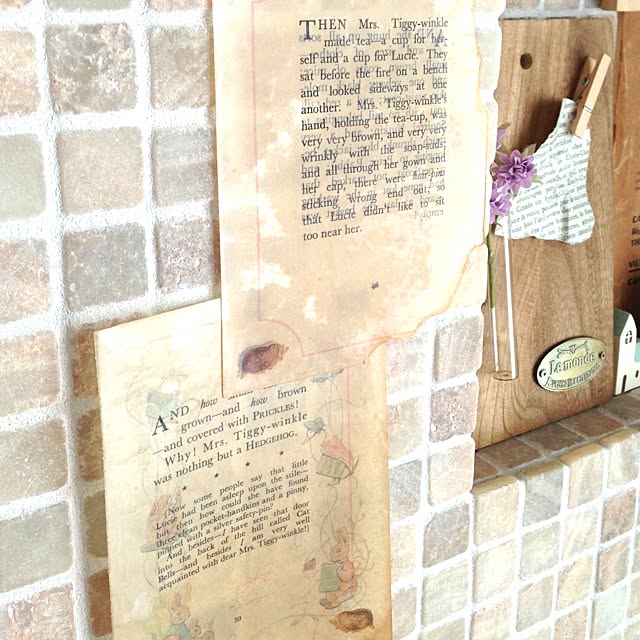 THEN Mrs. Tiggy-winkle
made tea—a cup for her-
self and a cup for Lucie. They
sat before the fire on a bench
and looked sideways at one
another. Mrs. Tiggy-winkle's
hand, holding the tea-cup, was
very very brown, and very very
wrinkly with the soap-suds;
and all through her gown and
her cap, there were hair-pins
sticking wrong end out; so
that Lucie didn't like to sit
too near her.
AND how
grown—and how brown
—and covered with PRICKLES!
Why! Mrs. Tiggy-winkle
was nothing but a HEDGEHOG.
* * * *
(Now some people say that little
Lucie had been asleep upon the stile—
but then how could she have found
three clean pocket-handkins and a pinny,
pinned with a silver safety-pin?
And besides—I have seen that door
into the back of the hill called Cat
Bells—and besides I am very well
acquainted with dear Mrs. Tiggy-winkle!)
59